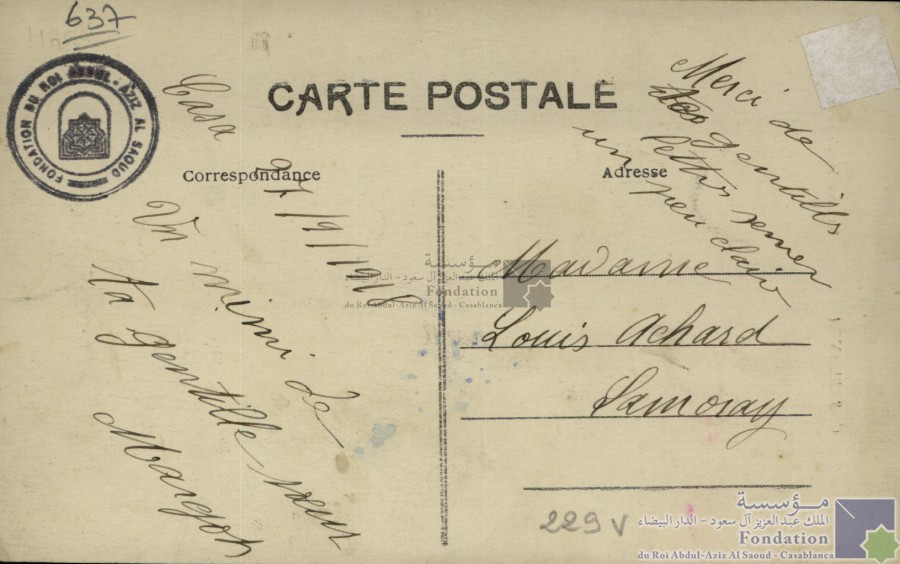 637
FONDATION DU ROI ABDUL-AZIZ AL SAOUD
CARTE POSTALE
Correspondance
Adresse
Casa
Un mimi de
ta gentille sœur
Margot
Merci de
gentilles
lettres
un peu
Madame
Louis Achard
Samoray
مؤسسة
الملك عبد العزيز آل سعود - الدار البيضاء
Fondation
du Roi Abdul-Aziz Al Saoud - Casablanca
229 V
مؤسسة
الملك عبد العزيز آل سعود - الدار البيضاء
Fondation
du Roi Abdul-Aziz Al Saoud - Casablanca